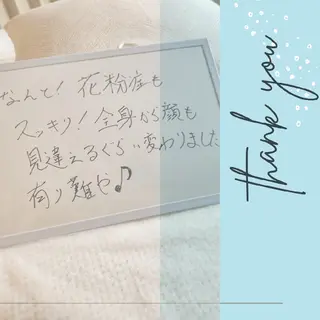 なんと！花粉症も
スッキリ！全身から顔も
見違えるぐらい変わりました
有り難や♪
thank you